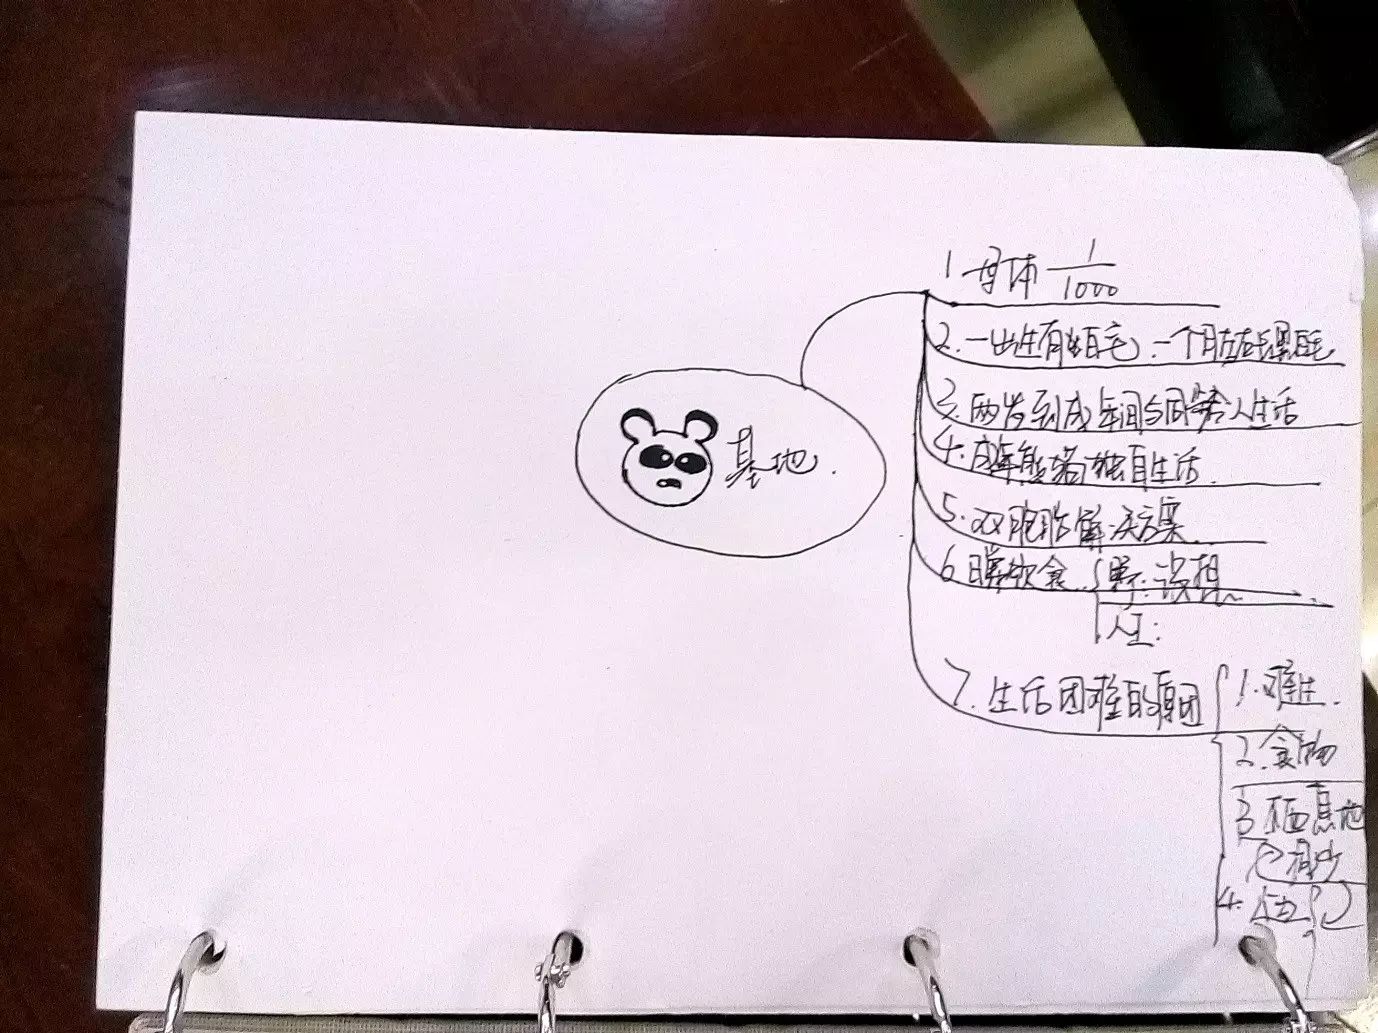 基地.
1 母体 1/1000
2.一出生有粉白毛,一个月左右长黑白毛
3.两岁到成年间与同伴合人生活
4.成年熊猫独自生活.
5.双胞胎解决方案
6 日常饮食 野: 设想
人工:
7.生活困难的原因
1.难生.
2.食物
3 栖息地
减少
4.